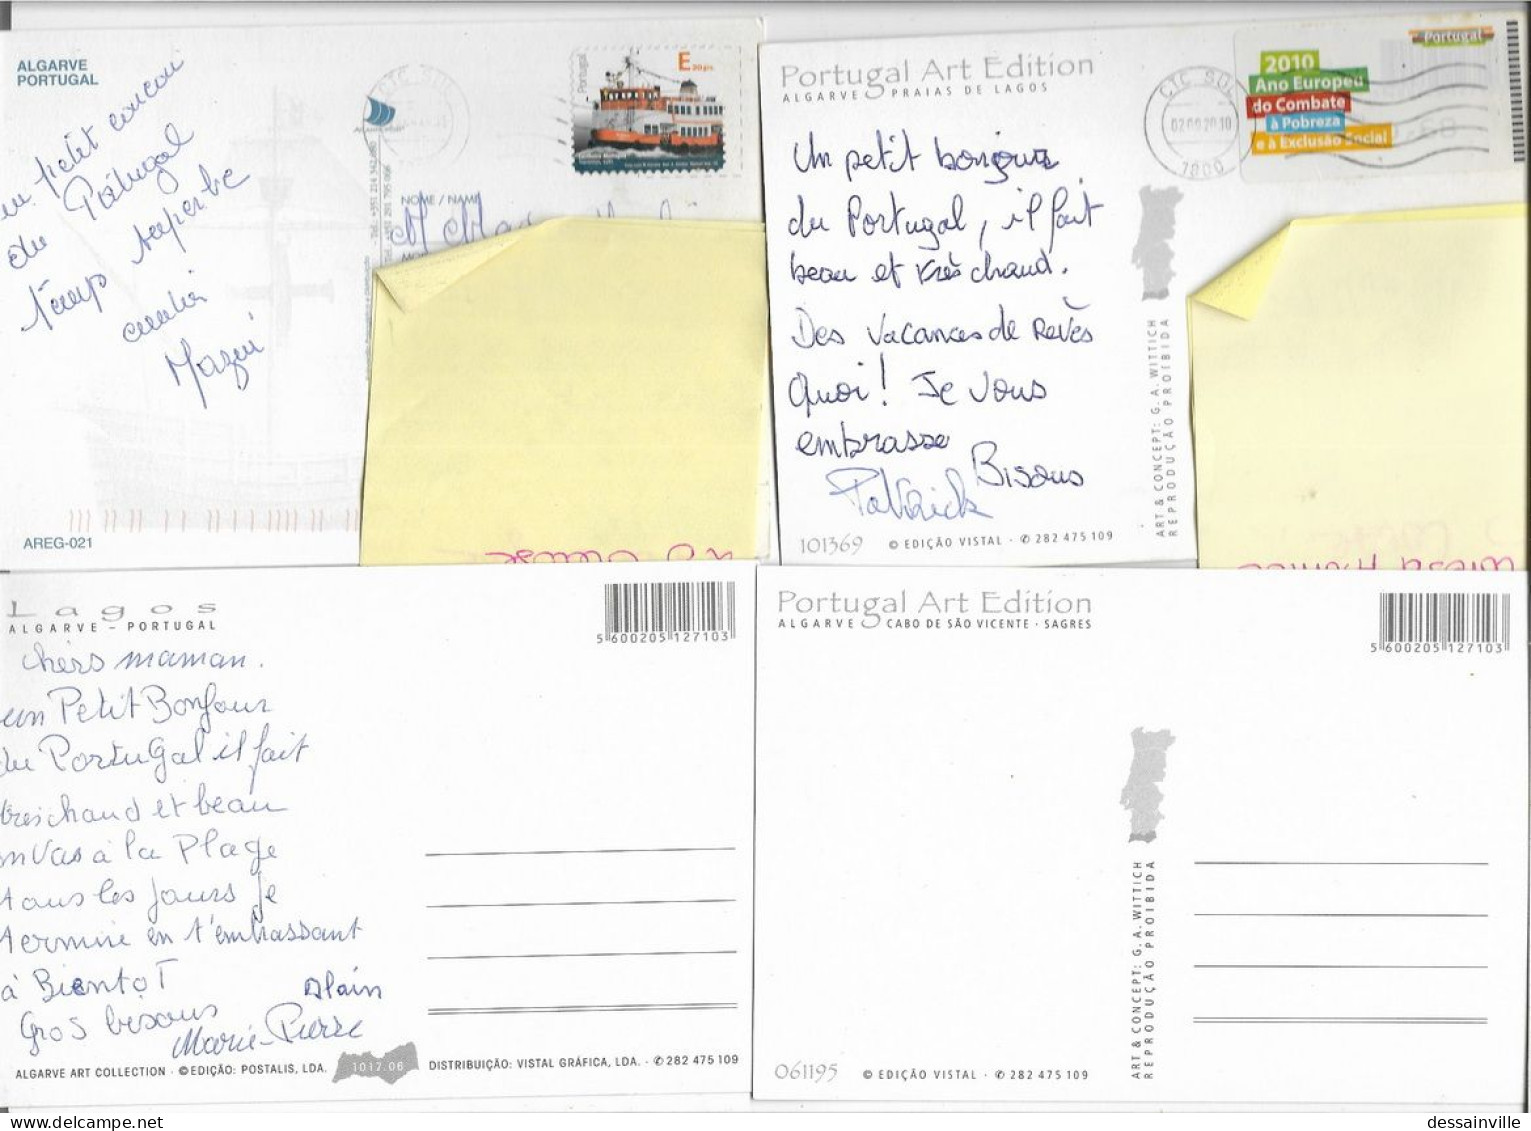 ALGARVE
PORTUGAL
un petit coucou
du Portugal
temps superbe
AREG-021
NOME / NAME
Portugal
E 20 grs.
Portugal Art Edition
ALGARVE PRAIAS DE LAGOS
Un petit bonjour
du Portugal, il fait
beau et très chaud.
Des vacances de Revès
Quoi! Je vous
embrasse
Bisous
Patrick
101369 © EDIÇÃO VISTAL · ✆ 282 475 109
ART & CONCEPT: G. A. WITTICH
REPRODUÇÃO PROIBIDA
CTC SUL
1800
Portugal
2010
Ano Europeu
do Combate
à Pobreza
e à Exclusão Social
Lagos
ALGARVE – PORTUGAL
5 600205 127103
chers maman.
un Petit Bonjour
du PortuGal il fait
treschaud et beau
on Vas à la Plage
tous les Jours Je
termine en t'embrassant
à BientoT
Alain
Gros bisous
Marie-Pierre
ALGARVE ART COLLECTION · © EDIÇÃO: POSTALIS, LDA.
1017.06
DISTRIBUIÇÃO: VISTAL GRÁFICA, LDA. · ✆ 282 475 109
Portugal Art Edition
ALGARVE CABO DE SÃO VICENTE · SAGRES
5 600205 127103
ART & CONCEPT: G. A. WITTICH
REPRODUÇÃO PROIBIDA
061195 © EDIÇÃO VISTAL · ✆ 282 475 109
dessainville